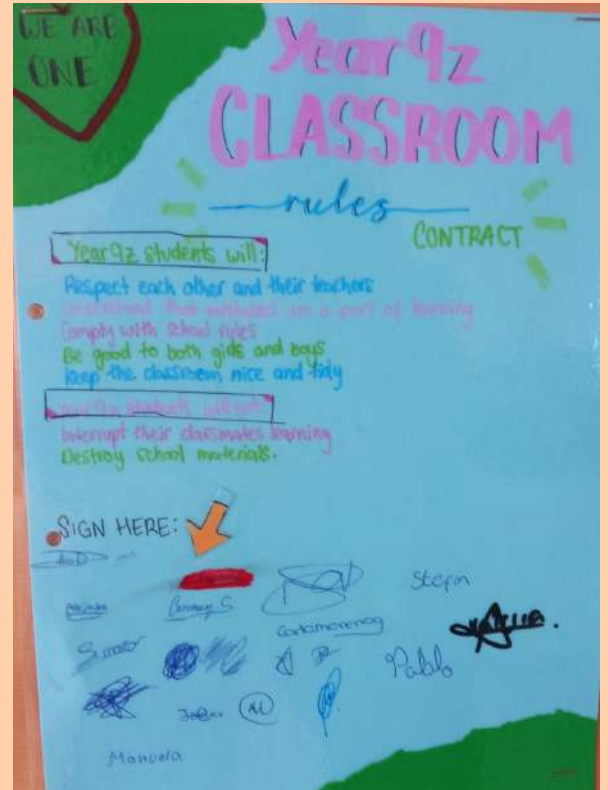 WE ARE
ONE
Year 9z
CLASSROOM
rules
CONTRACT
Year 9z students will:
Respect each other and their teachers
Understand that mistakes are a part of learning
Comply with school rules
Be good to both girls and boys
Keep the classroom nice and tidy
Year 9z students will not:
Interrupt their classmates learning
Destroy school materials.
SIGN HERE:
Carmen S
Pablo
Manuela